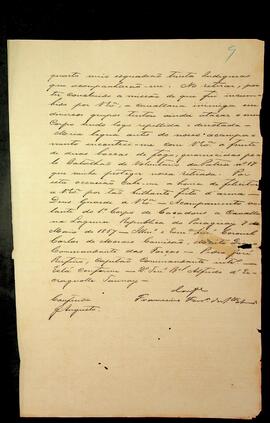 9
quarto mis esquadrão trinta Indigenas
que acompanhavão-me. Ao retirar, por
ter concluido a missão de que fui incum-
bido por VExª, a cavallaria inimiga em
diversos grupos tentou ainda atacar o meu
Corpo sendo logo repellida e derrotada.
Meia legua antes do nosso acampa-
mento encontrei-me com VExª á frente
de duas boccas de fogo, guarnecidas pelo
Batalhão de Voluntarios da Patria nº 17
que vinha proteger nossa retirada. Por
esta occasião cabe-me a honra de felicitar
a VExª por tão brilhante feito d'armas.
Deus Guarde a VExª. Acampamento vo-
lante do 1º Corpo de Caçadores a Cavallo
na Laguna Republica do Paraguay 7 de
Maio de 1867. Illmº e Exmº Snr. Coronel
Carlos de Moraes Camisão,
Commandante das Forças. Pedro José
Rufino, Capitão Commandante
Está Conforme. Alfredo d'Es-
cragnolle Taunay.
Conf.e
Francisco
Confere
Augusto